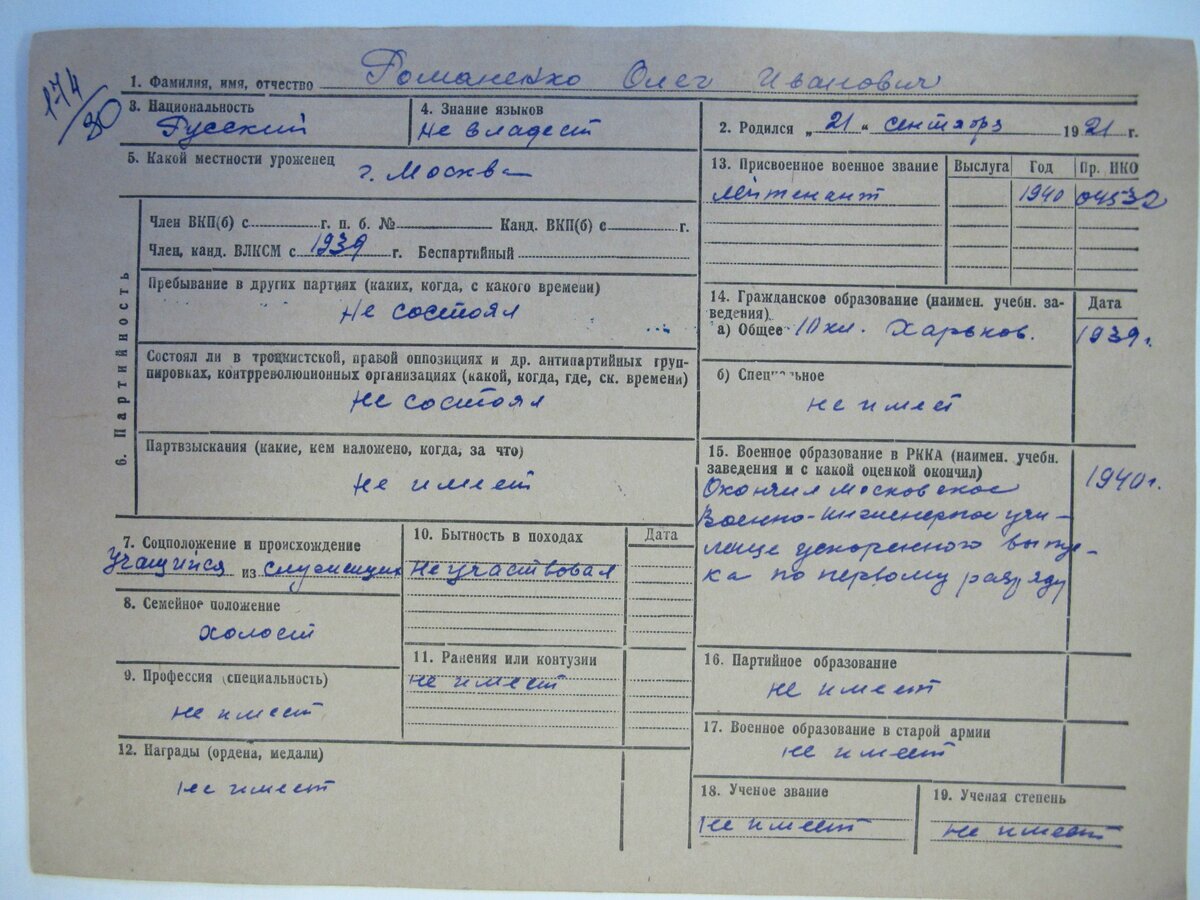 174/30
1. Фамилия, имя, отчество Романенко Олег Иванович
3. Национальность
Русский
4. Знание языков
Не владеет
2. Родился „ 21 “ сентября 1921 г.
5. Какой местности уроженец
г. Москва
6. Партийность
Член ВКП(б) с г. п. б. № Канд. ВКП(б) с г.
Член, канд. ВЛКСМ с 1939 г. Беспартийный
Пребывание в других партиях (каких, когда, с какого времени)
Не состоял
Состоял ли в троцкистской, правой оппозициях и др. антипартийных груп-
пировках, контрреволюционных организациях (какой, когда, где, ск. времени)
Не состоял
Партвзыскания (какие, кем наложено, когда, за что)
Не имеет
7. Соцположение и происхождение
Учащийся из служащих
8. Семейное положение
холост
9. Профессия (специальность)
не имеет
10. Бытность в походах
Дата
Не участвовал
11. Ранения или контузии
не имеет
12. Награды (ордена, медали)
не имеет
13. Присвоенное военное звание Выслуга Год Пр. НКО
лейтенант 1940 04532
14. Гражданское образование (наимен. учебн. за-
ведения)
Дата
а) Общее 10 кл. Харьков. 1939 г.
б) Специальное
не имеет
15. Военное образование в РККА (наимен. учебн.
заведения и с какой оценкой окончил)
1940 г.
Окончил Московское
Военно-инженерное учи-
лище ускоренного выпус-
ка по первому разряду
16. Партийное образование
не имеет
17. Военное образование в старой армии
не имеет
18. Ученое звание
не имеет
19. Ученая степень
не имеет